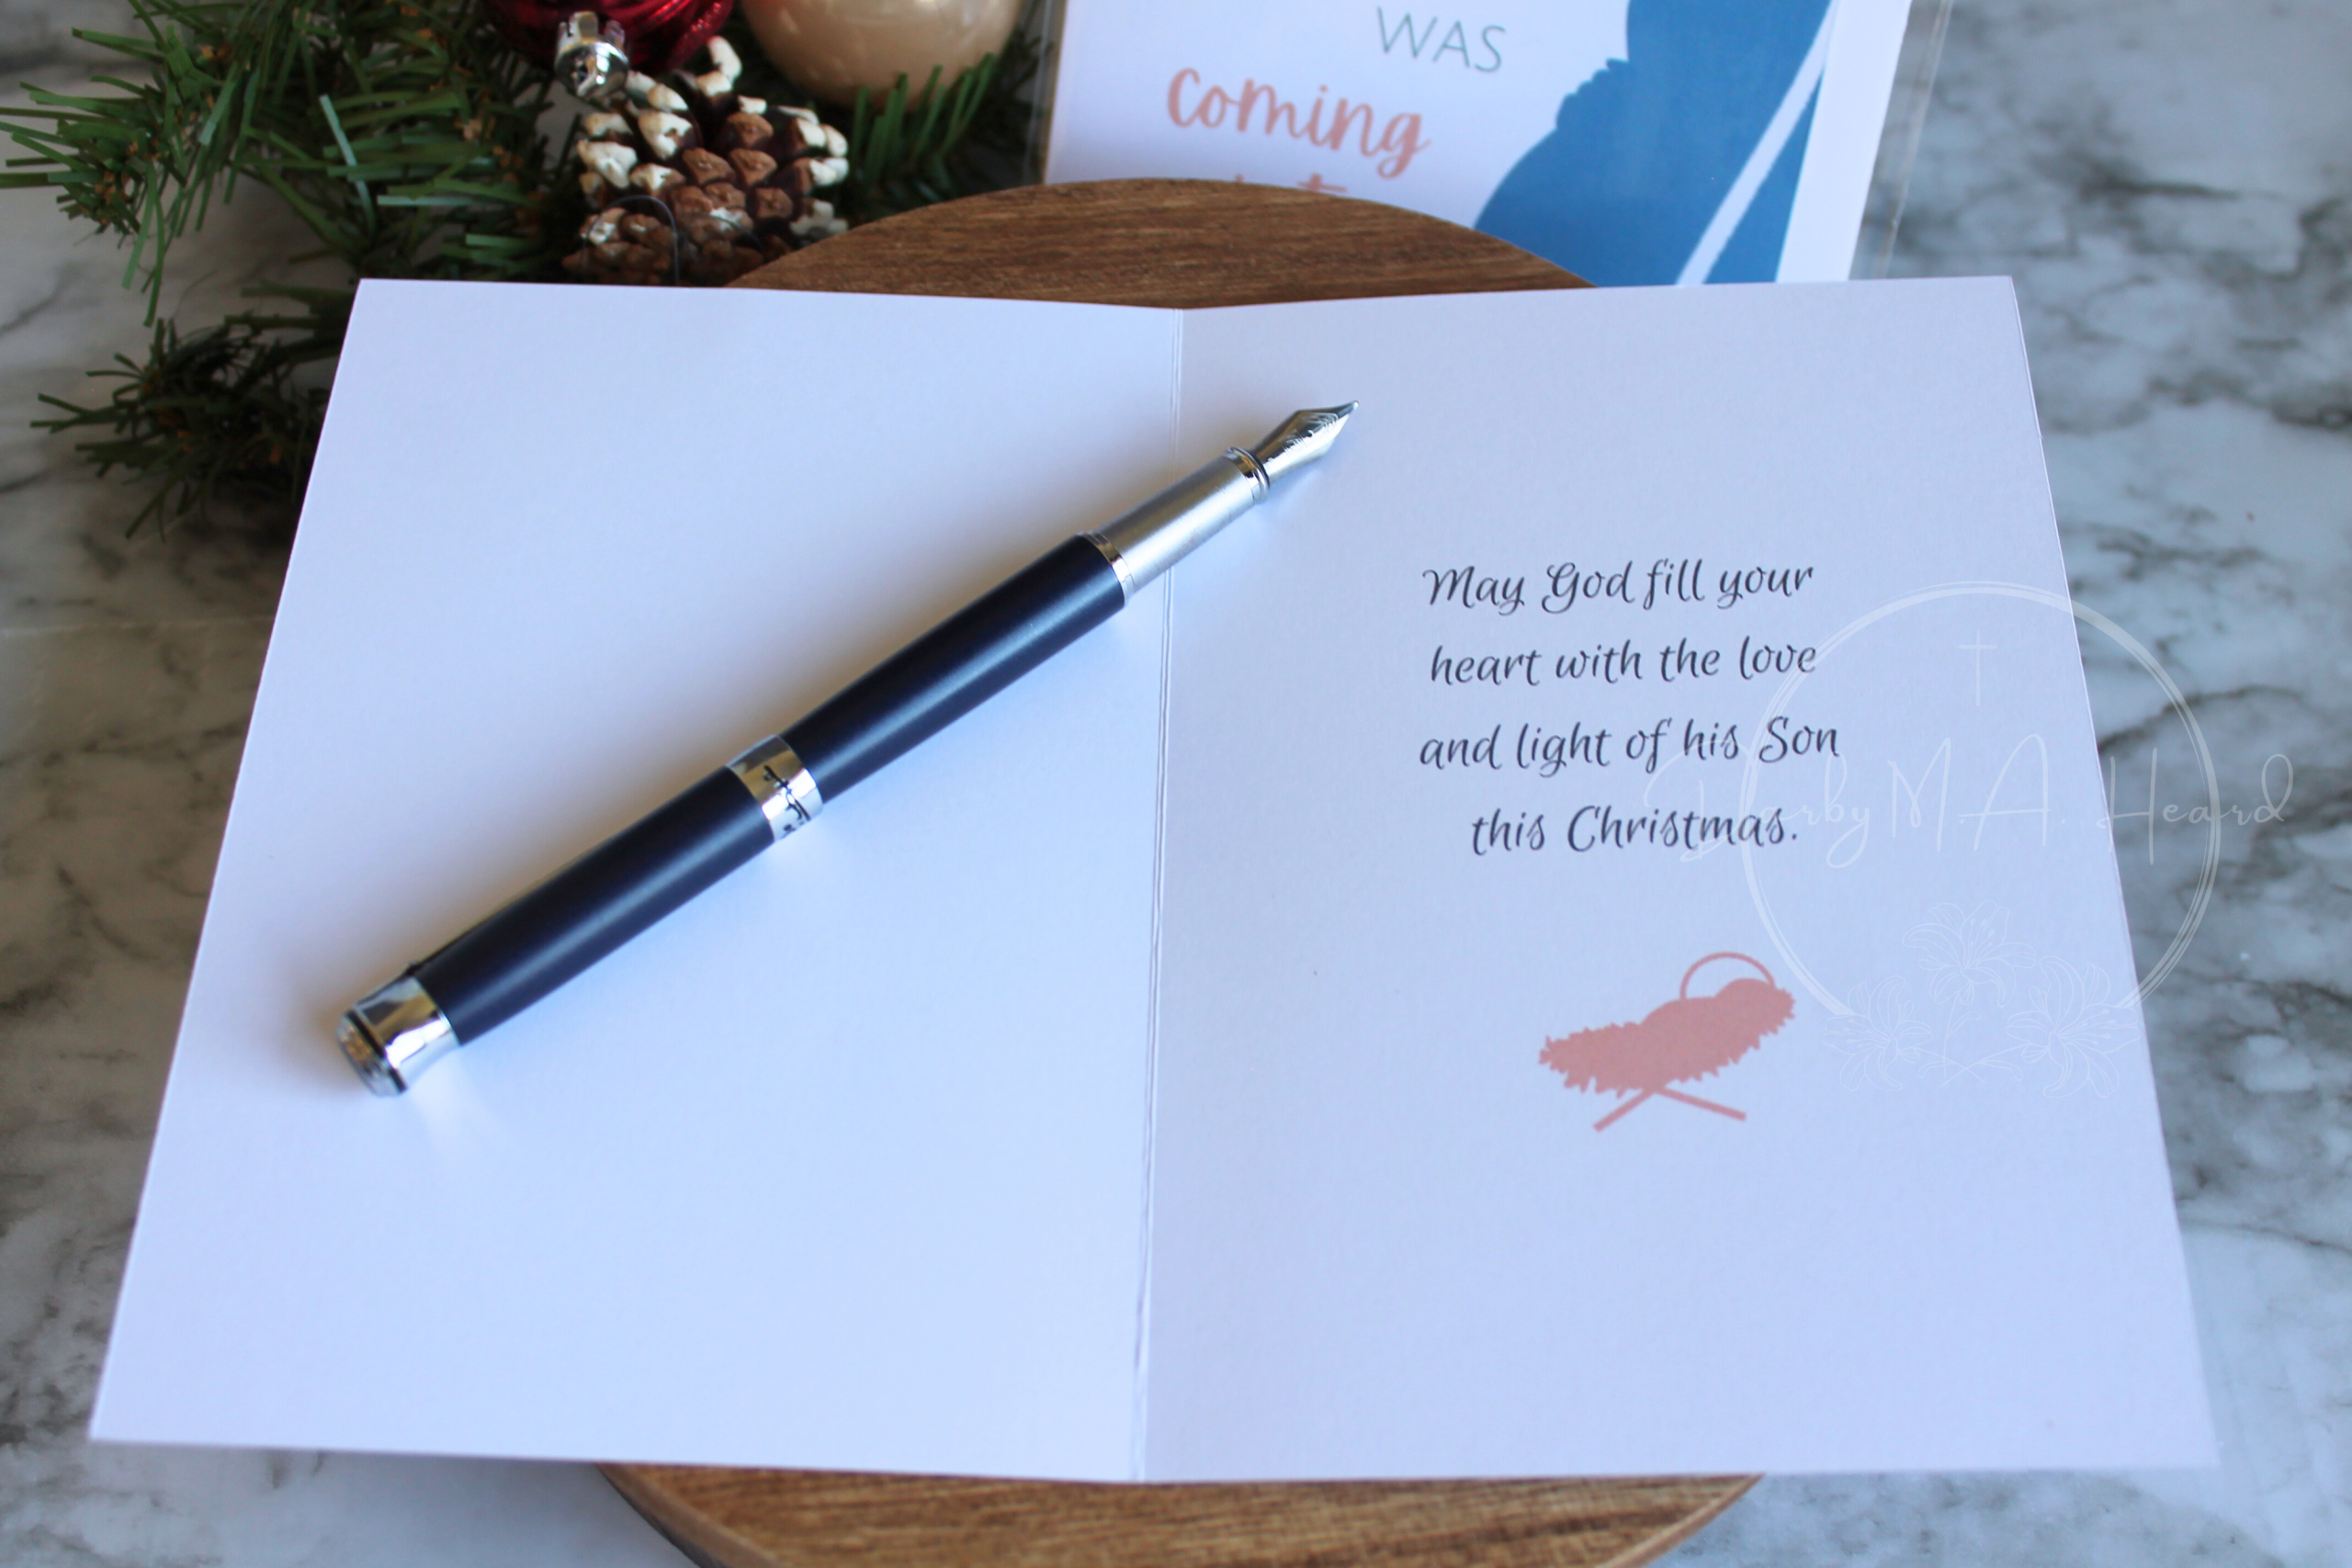 WAS
coming
May God fill your
heart with the love
and light of his Son
this Christmas.
Darby M A. Heard